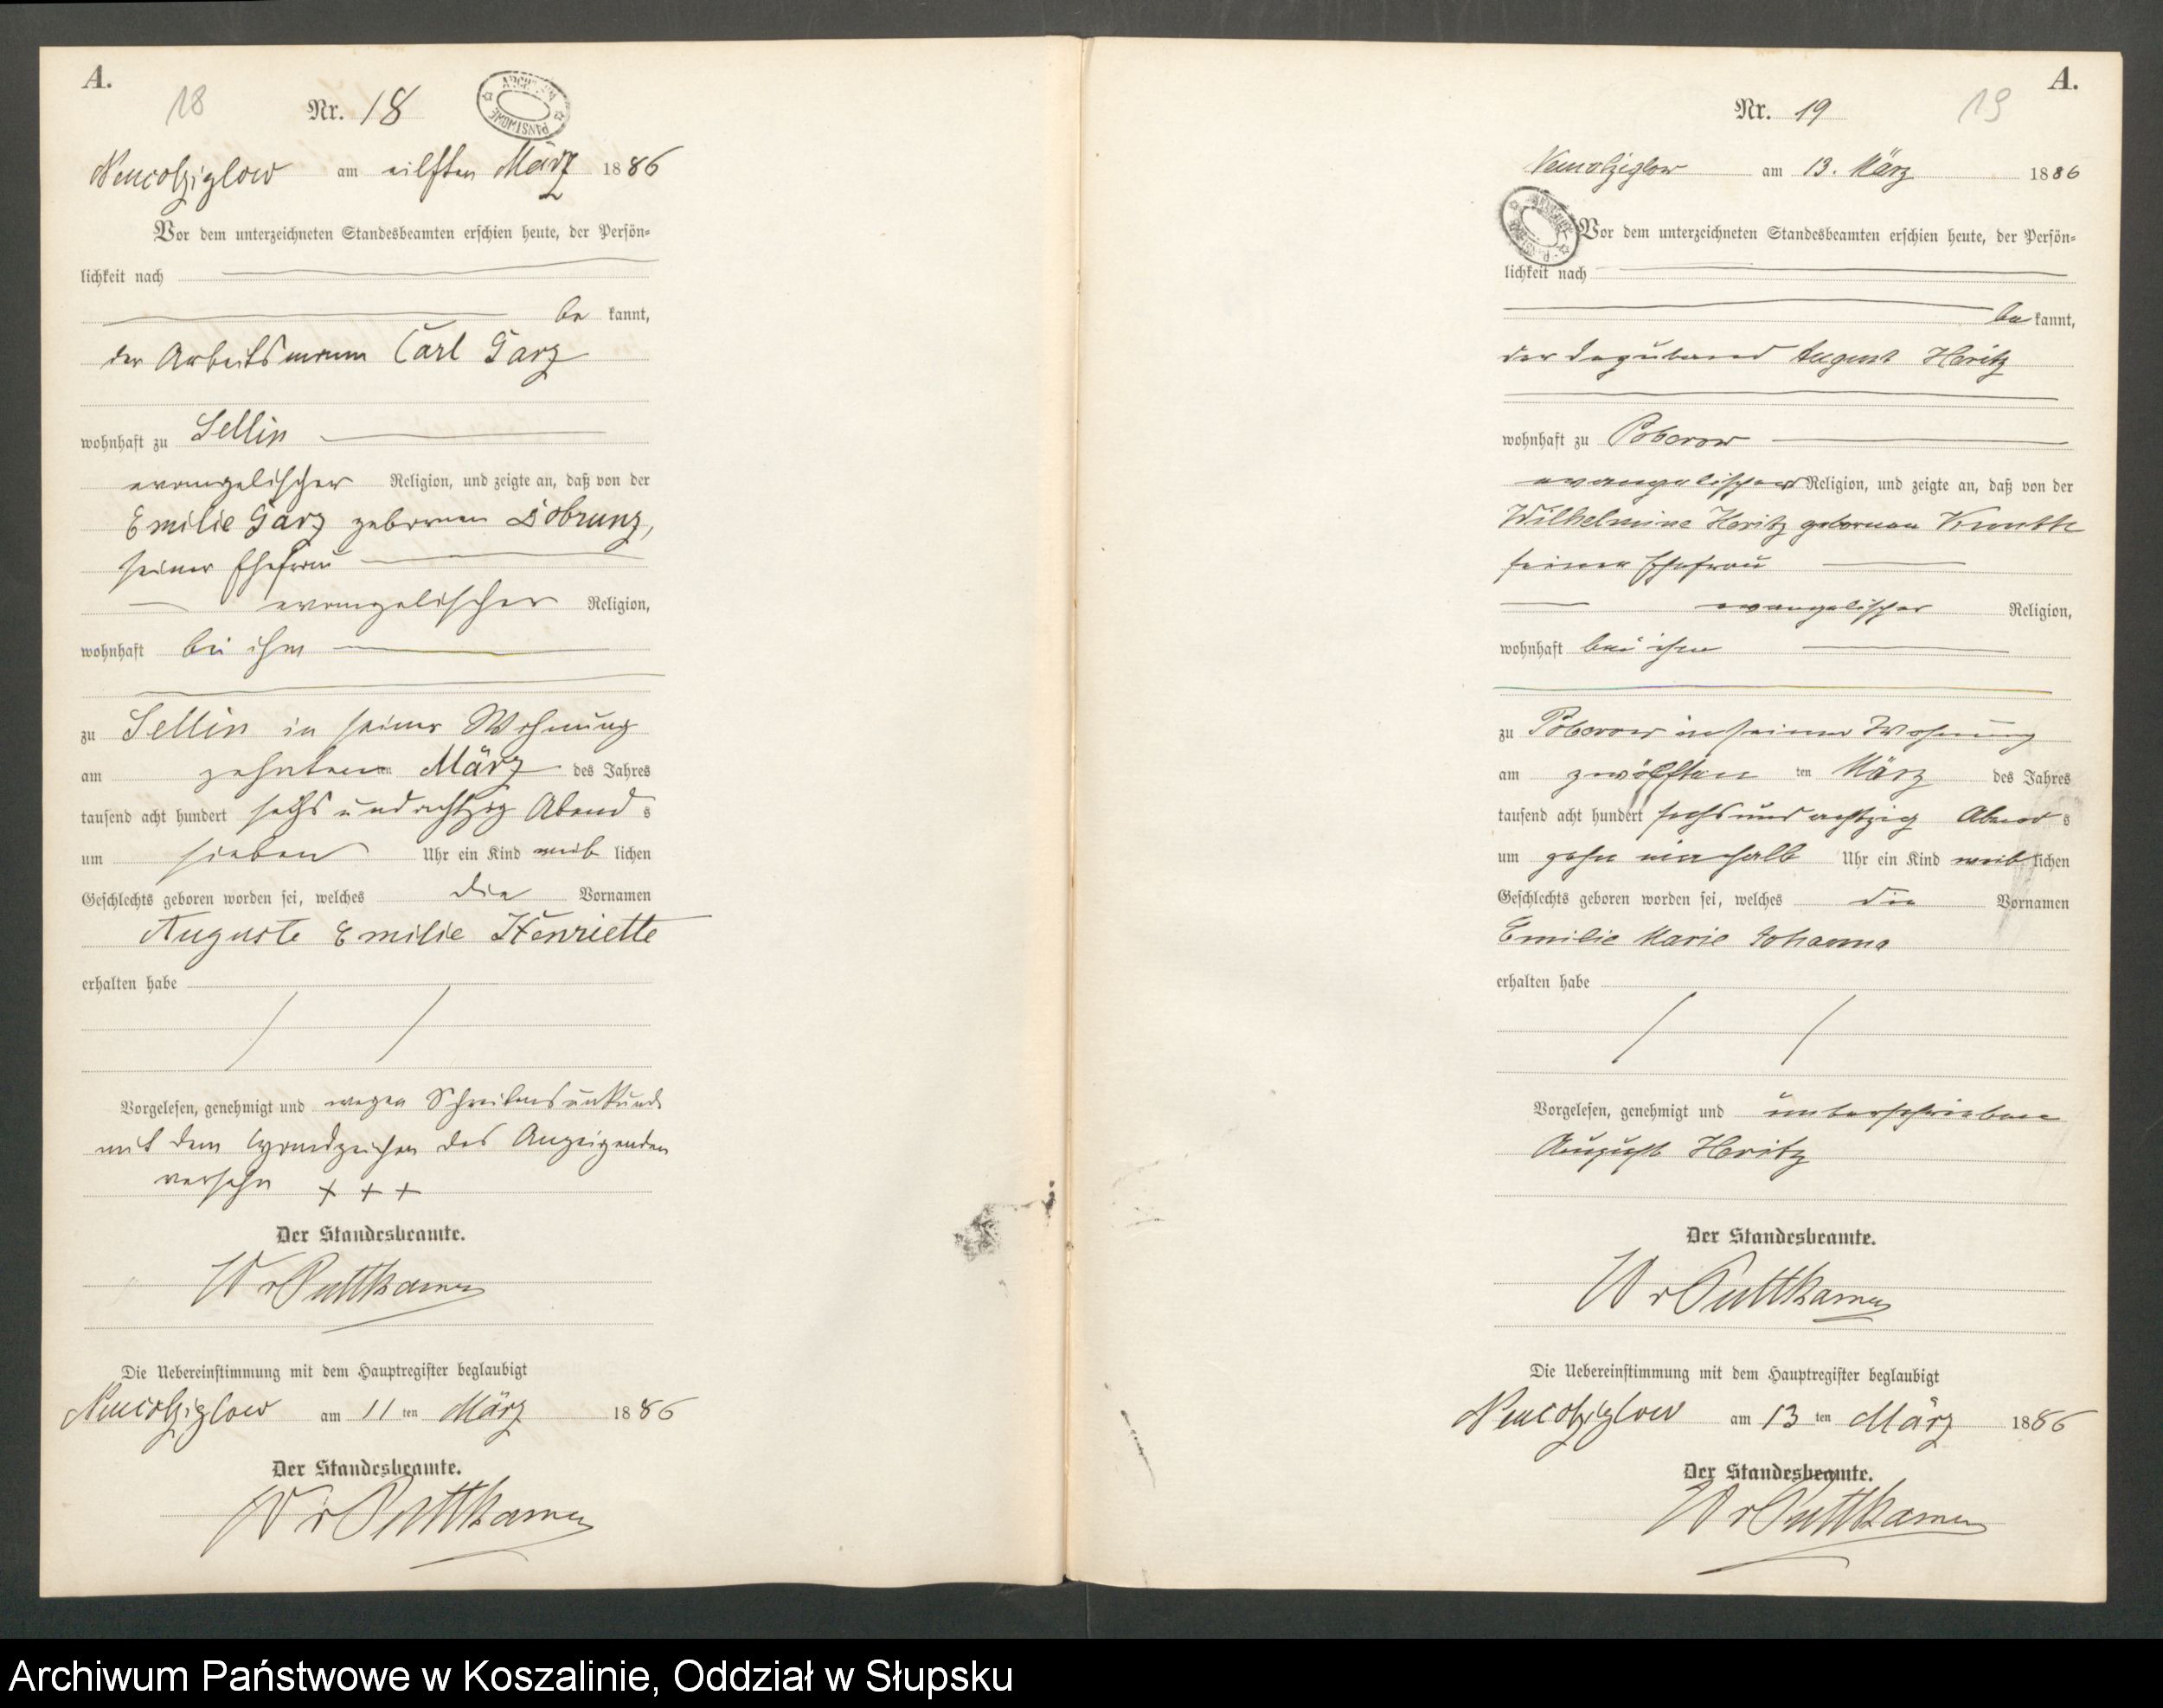 A.
18
Nr. 18
ARCHIWUM PAŃSTWOWE
Neucolziglow am eilften März 1886
Vor dem unterzeichneten Standesbeamten erschien heute, der Persön=
lichkeit nach
be kannt,
der Arbeitsmann Carl Garz
wohnhaft zu Sellin
evangelischer Religion, und zeigte an, daß von der
Emilie Garz geborenen Dobrunz,
seiner Ehefrau
evangelischer Religion,
wohnhaft bei ihm
zu Sellin in seiner Wohnung
am zehnten ten März des Jahres
tausend acht hundert sechs und achtzig Abend s
um sieben Uhr ein Kind weib lichen
Geschlechts geboren worden sei, welches die Vornamen
Auguste Emilie Henriette
erhalten habe
Vorgelesen, genehmigt und wegen Schreibensunkunde
mit dem Handzeichen des Anzeigenden
versehn + + +
Der Standesbeamte.
W v Puttkamer
Die Uebereinstimmung mit dem Hauptregister beglaubigt
Neucolziglow am 11 ten März 1886
Der Standesbeamte.
W v Puttkamer
A.
19
Nr. 19
Neucolziglow am 13. März 1886
Vor dem unterzeichneten Standesbeamten erschien heute, der Persön=
lichkeit nach
be kannt,
der August Heritz
wohnhaft zu Poberow
evangelischer Religion, und zeigte an, daß von der
Wilhelmine Heritz geborenen
seiner Ehefrau
evangelischer Religion,
wohnhaft bei ihm
zu Poberow in seiner Wohnung
am zwölften ten März des Jahres
tausend acht hundert sechs und achtzig Abend s
um zehn ein halb Uhr ein Kind weib lichen
Geschlechts geboren worden sei, welches die Vornamen
Emilie Marie Johanna
erhalten habe
Vorgelesen, genehmigt und unterschrieben
August Heritz
Der Standesbeamte.
W v Puttkamer
Die Uebereinstimmung mit dem Hauptregister beglaubigt
Neucolziglow am 13 ten März 1886
Der Standesbeamte.
W v Puttkamer
Archiwum Państwowe w Koszalinie, Oddział w Słupsku